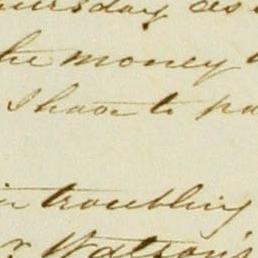 Thursday as
the money
I have to pa
in troubling
r. Watson's